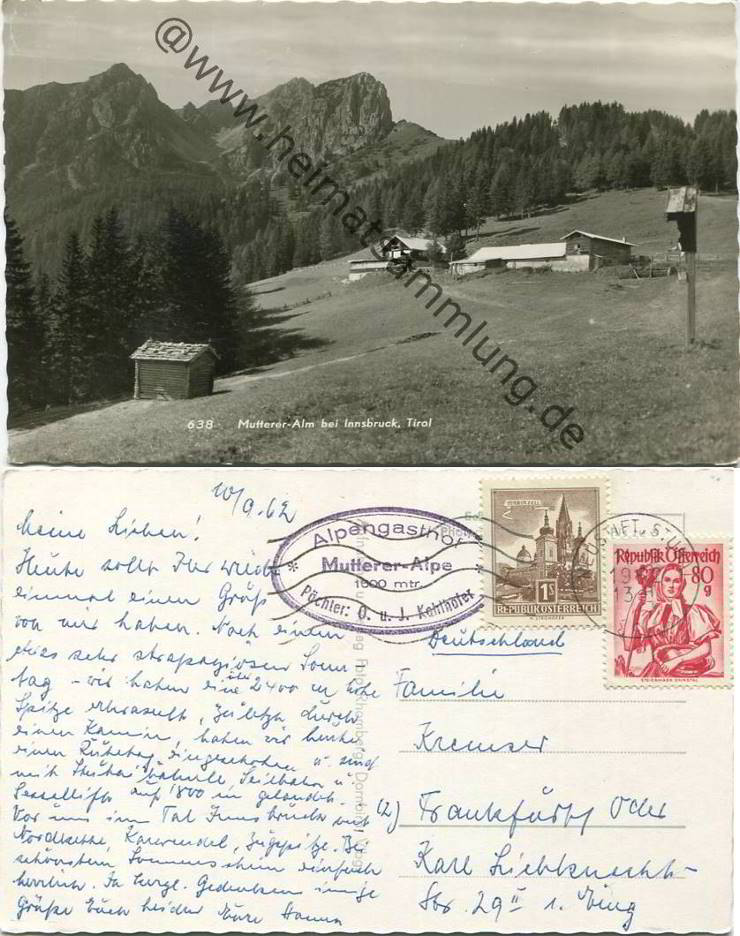 @www.heimatsammlung.de
638 Mutterer-Alm bei Innsbruck, Tirol
10/9.62
Meine Lieben!
Heute sollt Ihr wieder
einmal einen Gruß
von mir haben. Nach einem
etwas sehr strapaziösen Sonn-
tag - wir haben eine über 2400 m hohe
Spitze erkraxelt, zuletzt durch
einen Kamin, haben wir heute
einen Ruhetag eingeschoben u. sind
mit Stubaitalbahn, Seilbahn u.
Sessellift auf 1800 m gelandet.
Vor uns im Tal Innsbruck mit
Nordkette, Karwendel, Zugspitze. Bei
schönstem Sonnenschein einfach
herrlich. In Gedenken innige
Grüße Euch beiden Eure
Alpengasthof
Mutterer-Alpe
1600 mtr.
Pächter: O. u. J. Kohlhofer
MARIAZELL
1S
REPUBLIK ÖSTERREICH
Republik Österreich
80
g
STEIERMARK ENNSTAL
Deutschland
Familie
Kremser
(2) Frankfurt/Oder
Karl Liebknecht-
Str. 29 II 1. Eing